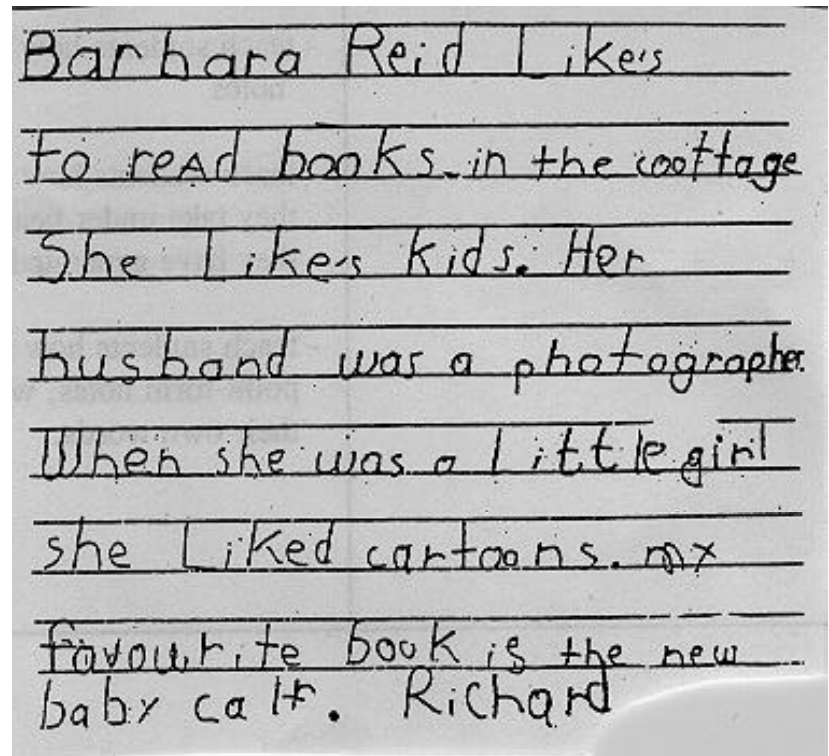 Barbara Reid Likes
to read books in the coottage
She Likes kids. Her
husband was a photographer.
When she was a little girl
she Liked cartoons. my
favourite book is the new
baby calf. Richard